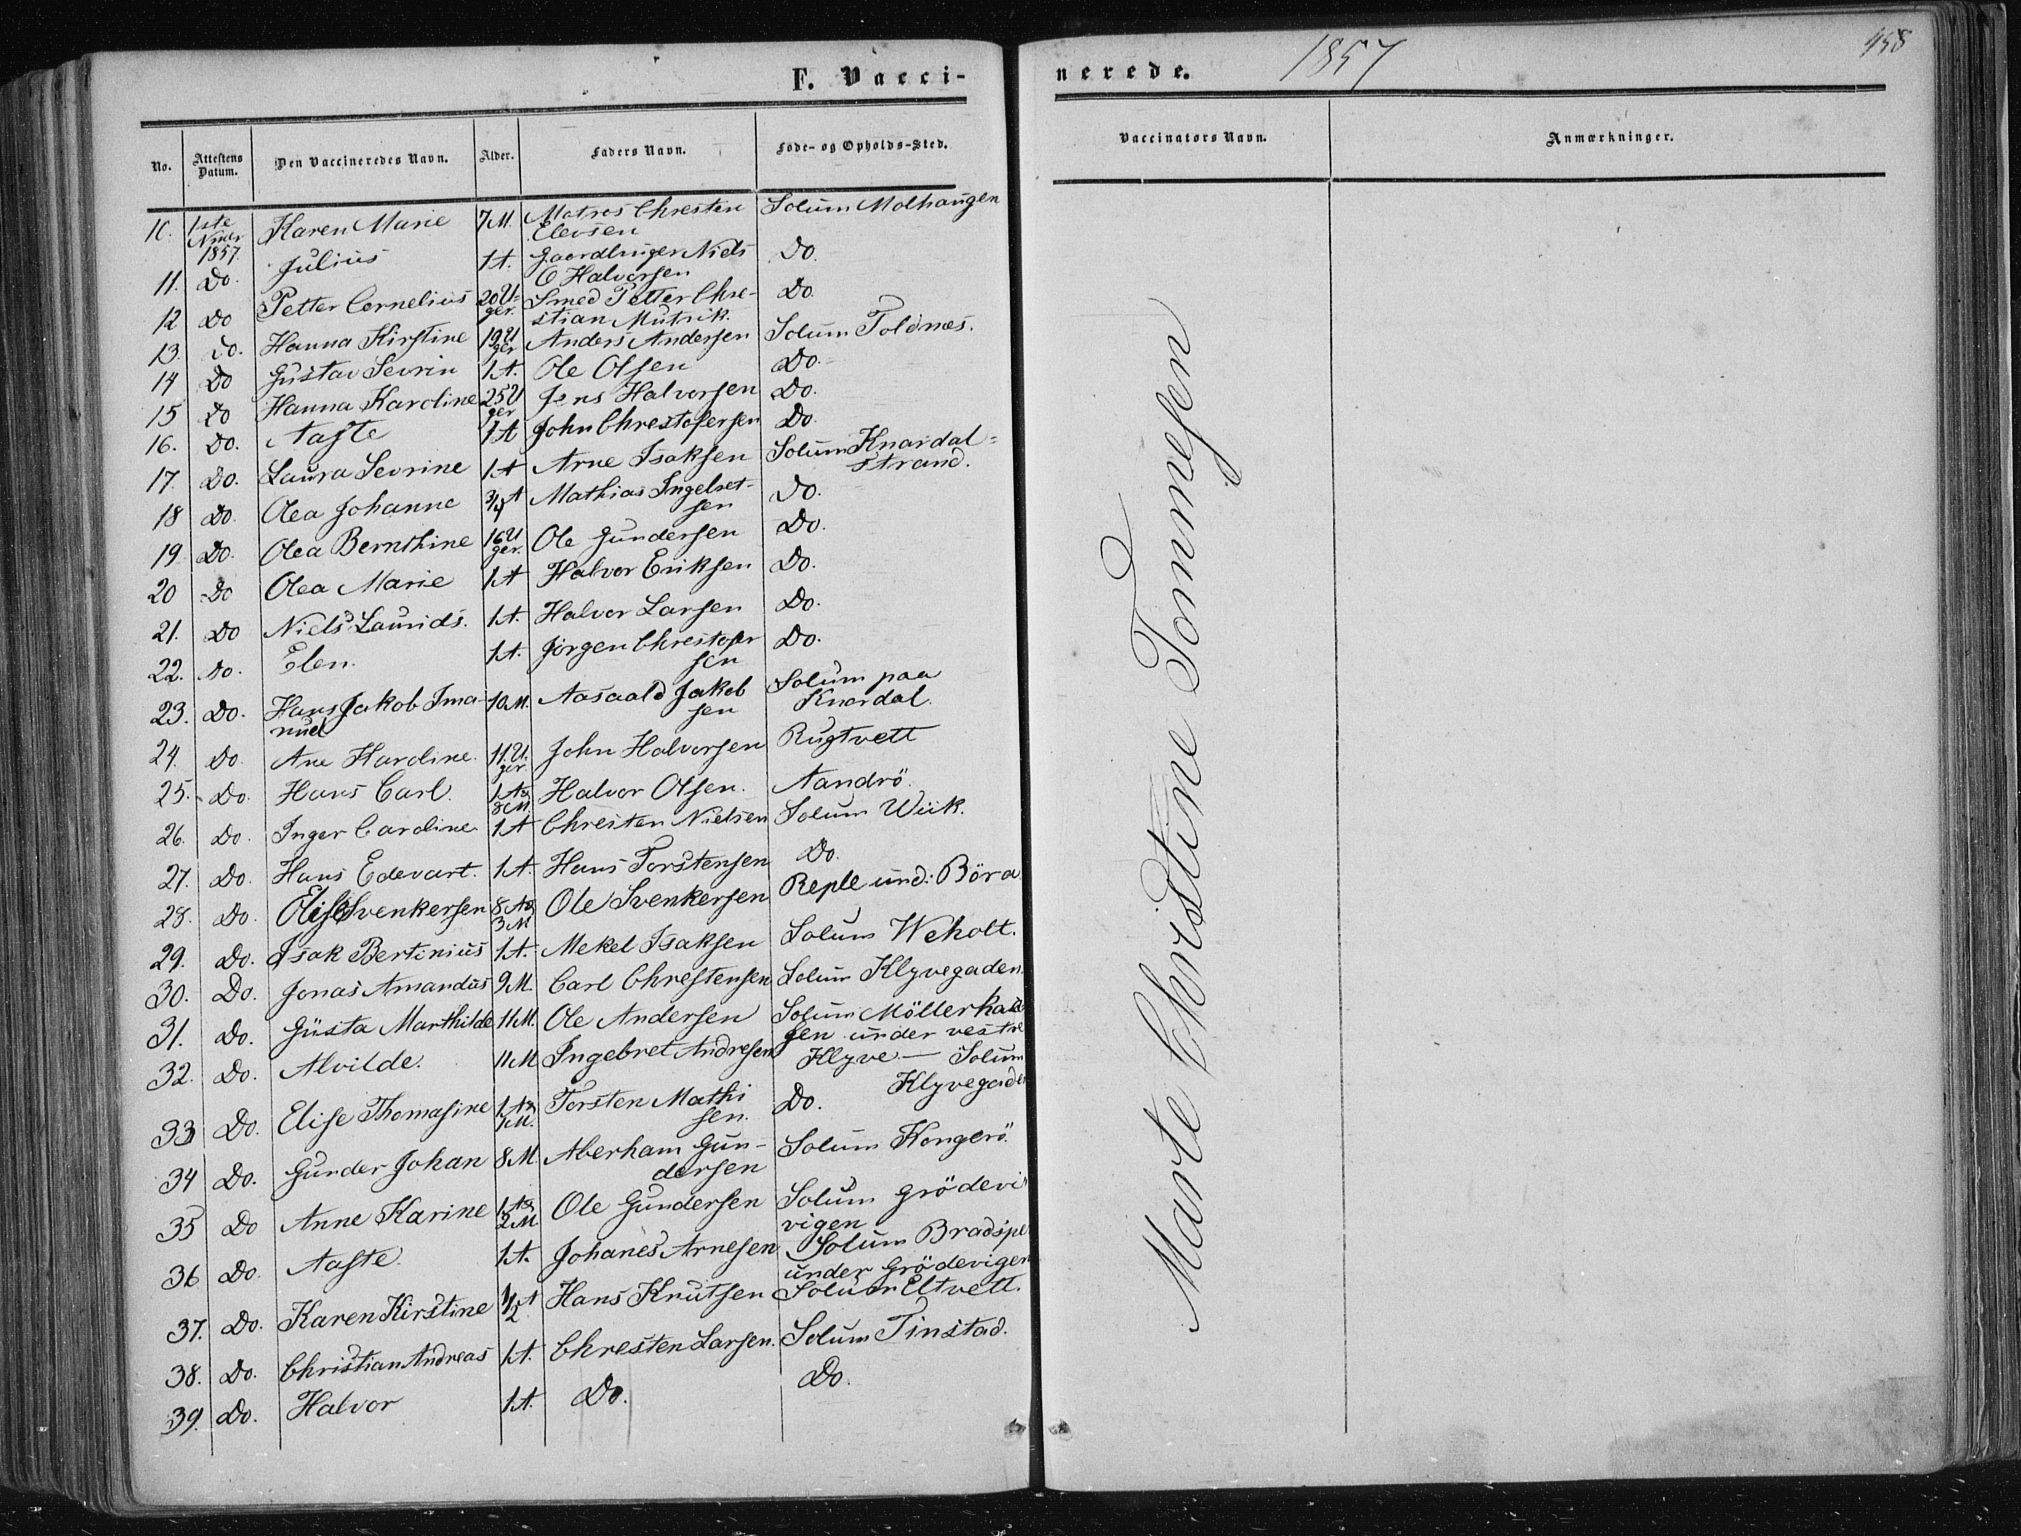 F. Vacci-
nerede. 1857 458
No. Attestens Datum. Den Vaccineredes Navn. Alder. Faders Navn. Føde- og Opholds-Sted. Vaccinators Navn. Anmærkninger.
10. 1ste Nvbr 1857. Karen Marie 7 M. Matros Chresten Elevsen Solum Molhaugen
11. Do. Julius 1 A. Gaardbruger Niels C Halvorsen Do.
12 Do Petter Cornelius 20 U-ger. Smed Petter Chre-stian Mutrik. Do.
13. Do. Hanna Kirstine 19 U ger Anders Andersen Solum Toldnes.
14 Do Gustav Sevrin 1 A. Ole Olsen Do.
15 Do Hanna Karoline 25 U ger Jens Halvorsen Do.
16. Do. Aaste 1 A John Chrestofersen Do.
17. Do. Laura Sevrine 1 A Arne Isaksen Solum Knardal=strand.
18 Do. Olea Johanne 3/4 A Mathias Ingelset-sen Do.
19 Do. Olea Bernthine 16 U ger. Ole Gundersen Do.
20 Do Olea Marie 1 A Halvor Eriksen Do.
21. Do Niels Laurids. 1 A. Halvor Larsen Do.
22. Do. Elen. 1 A. Jörgen Chrestofer sen Do.
23. Do. Hans Jakob Ima-nuel 10 M. Aasaald Jakob sen Solum paa Knardal.
24. Do. Ane Karoline. 11 U. ger. John Halvorsen Rugtvett
25. Do. Hans Carl. 1 A & 8 M. Halvor Olsen. Aandrö.
26. Do. Inger Caroline 1 A Chresten Nielsen Solum Wiik.
27. Do. Hans Edevart. 1 A. Hans Torstensen Do.
28. Do. Elise Svenkersen 8 A & 3 M Ole Svenkersen Reple und: Böra
29. Do. Isak Bertinius 1 A. Mekel Isaksen Solum Weholt.
30. Do. Jonas Amandus 9 M. Carl Chrestensen Solum Klyvegaden.
31. Do. Gusta Marthilde 11 M. Ole Andersen Solum Möllerhau-gen under vestre
32. Do. Alvilde. 11 M Ingebret Andresen Klyve — Solum Klyvegaden
33 Do. Elise Thomasine 1 A & 1 M. Torsten Mathi sen. Do.
34 Do. Gunder Johan 8 M. Aberham Gun-dersen Solum Kongerö.
35 Do Anne Karine 1 A & 2 M Ole Gundersen Solum Grödevi vigen
36 Do. Aaste. 1 A. Johanes Arnesen Solum Bradspe under Grödevigen
37. Do. Karen Kirstine 1/2 A Hans Knutsen Solum Eltvett.
38. Do. Christian Andreas 1 A. Chresten Larsen. Solum Tinstad.
39. Do. Halvor 1 A. Do. Do.
Marte Christine Tonnesen